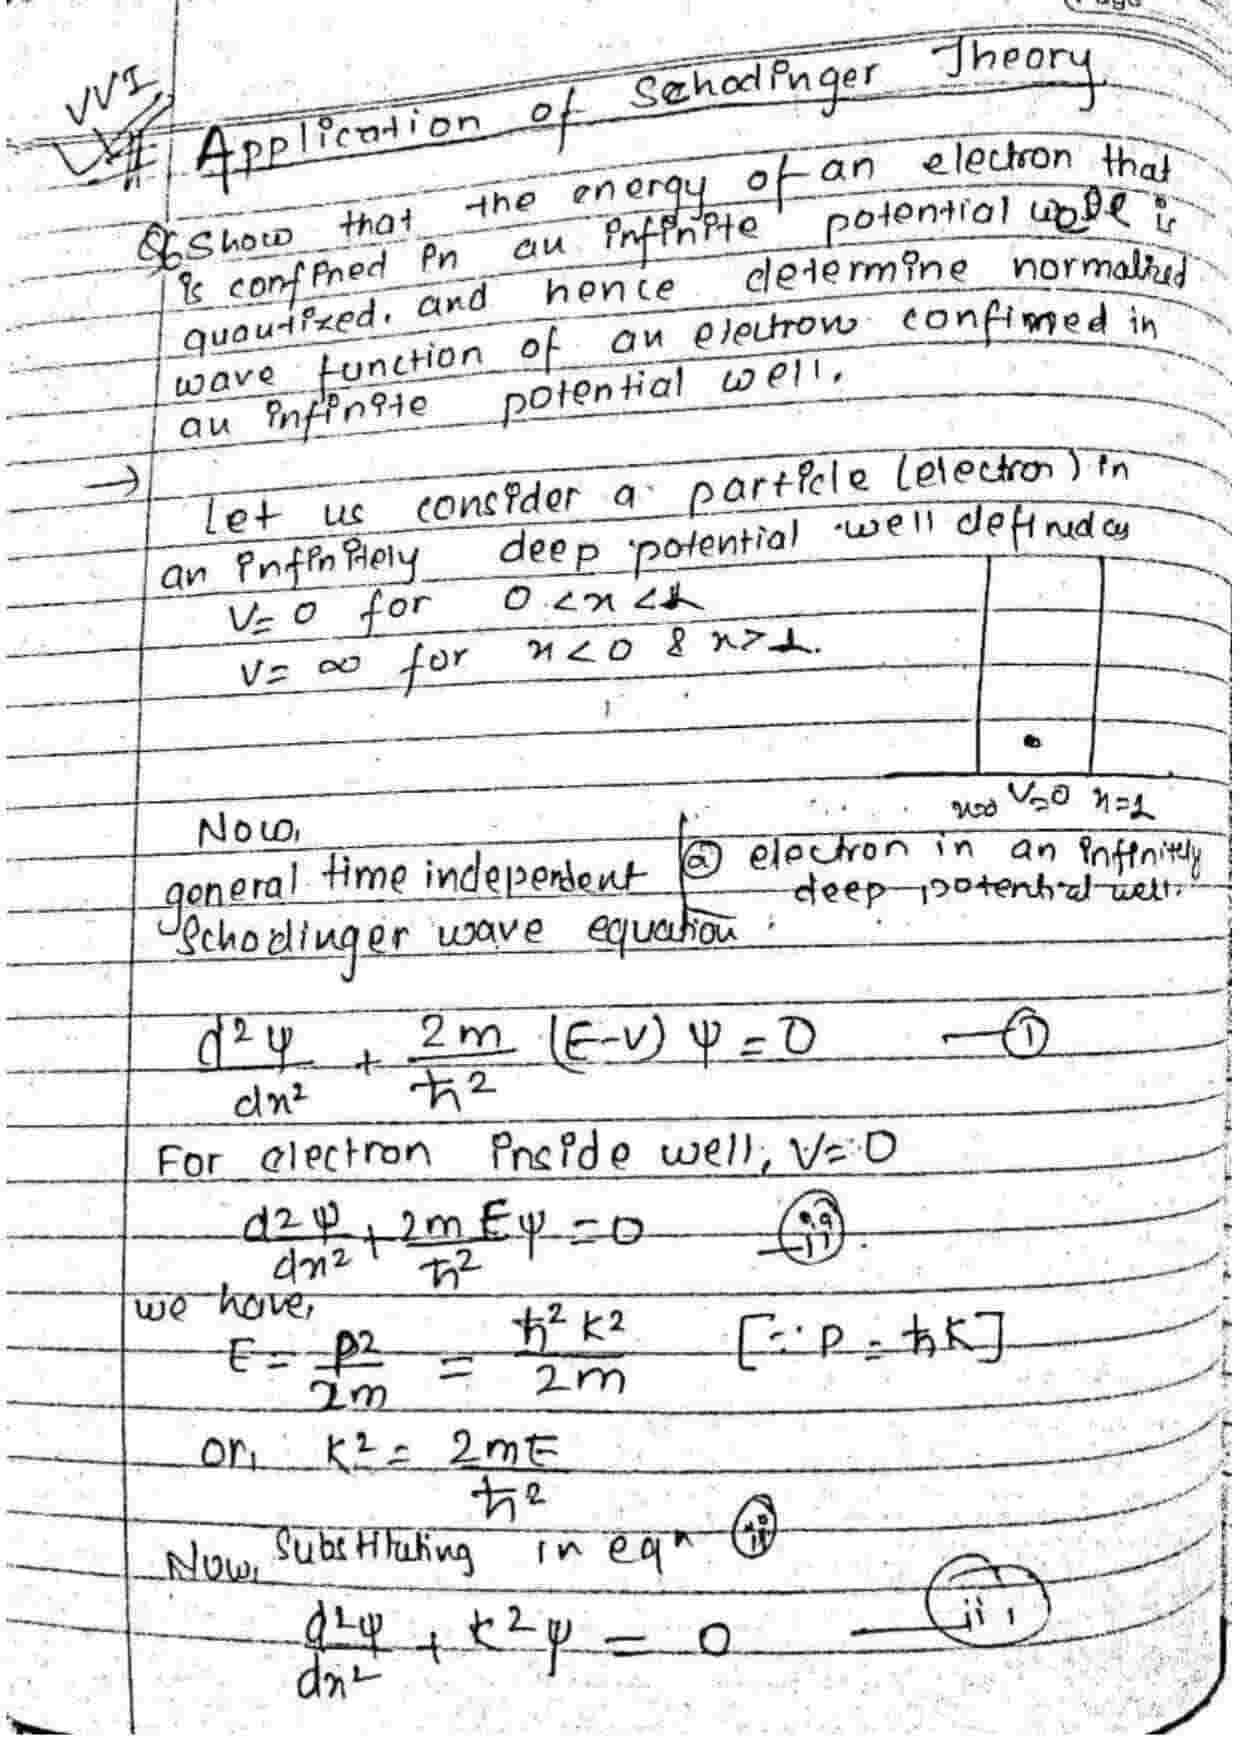 VVI
# Application of Schodinger Theory
Q6 Show that the energy of an electron that
is confined in an infinite potential well is
quantized. and hence determine normalized
wave function of an electron confined in
an infinite potential well.
→ Let us consider a particle (electron) in
an infinitely deep potential well defined as
V= 0 for 0 < x < L
V= ∞ for x < 0 & x > L.
x=0 V=0 x=L
Now,
general time independent
Schodinger wave equation
ⓐ electron in an infinitely
deep potential well.
d²ψ/dx² + 2m/ħ² (E-V) ψ = 0 — ①
For electron inside well, V= 0
d²ψ/dx² + 2m/ħ² Eψ = 0 — ⓘⓘ
we have,
E = p²/2m = ħ²k²/2m [∵ p = ħk]
or, k² = 2mE/ħ²
Now, Substituting in eqn ⓘⓘ
d²ψ/dx² + k²ψ = 0 — iii